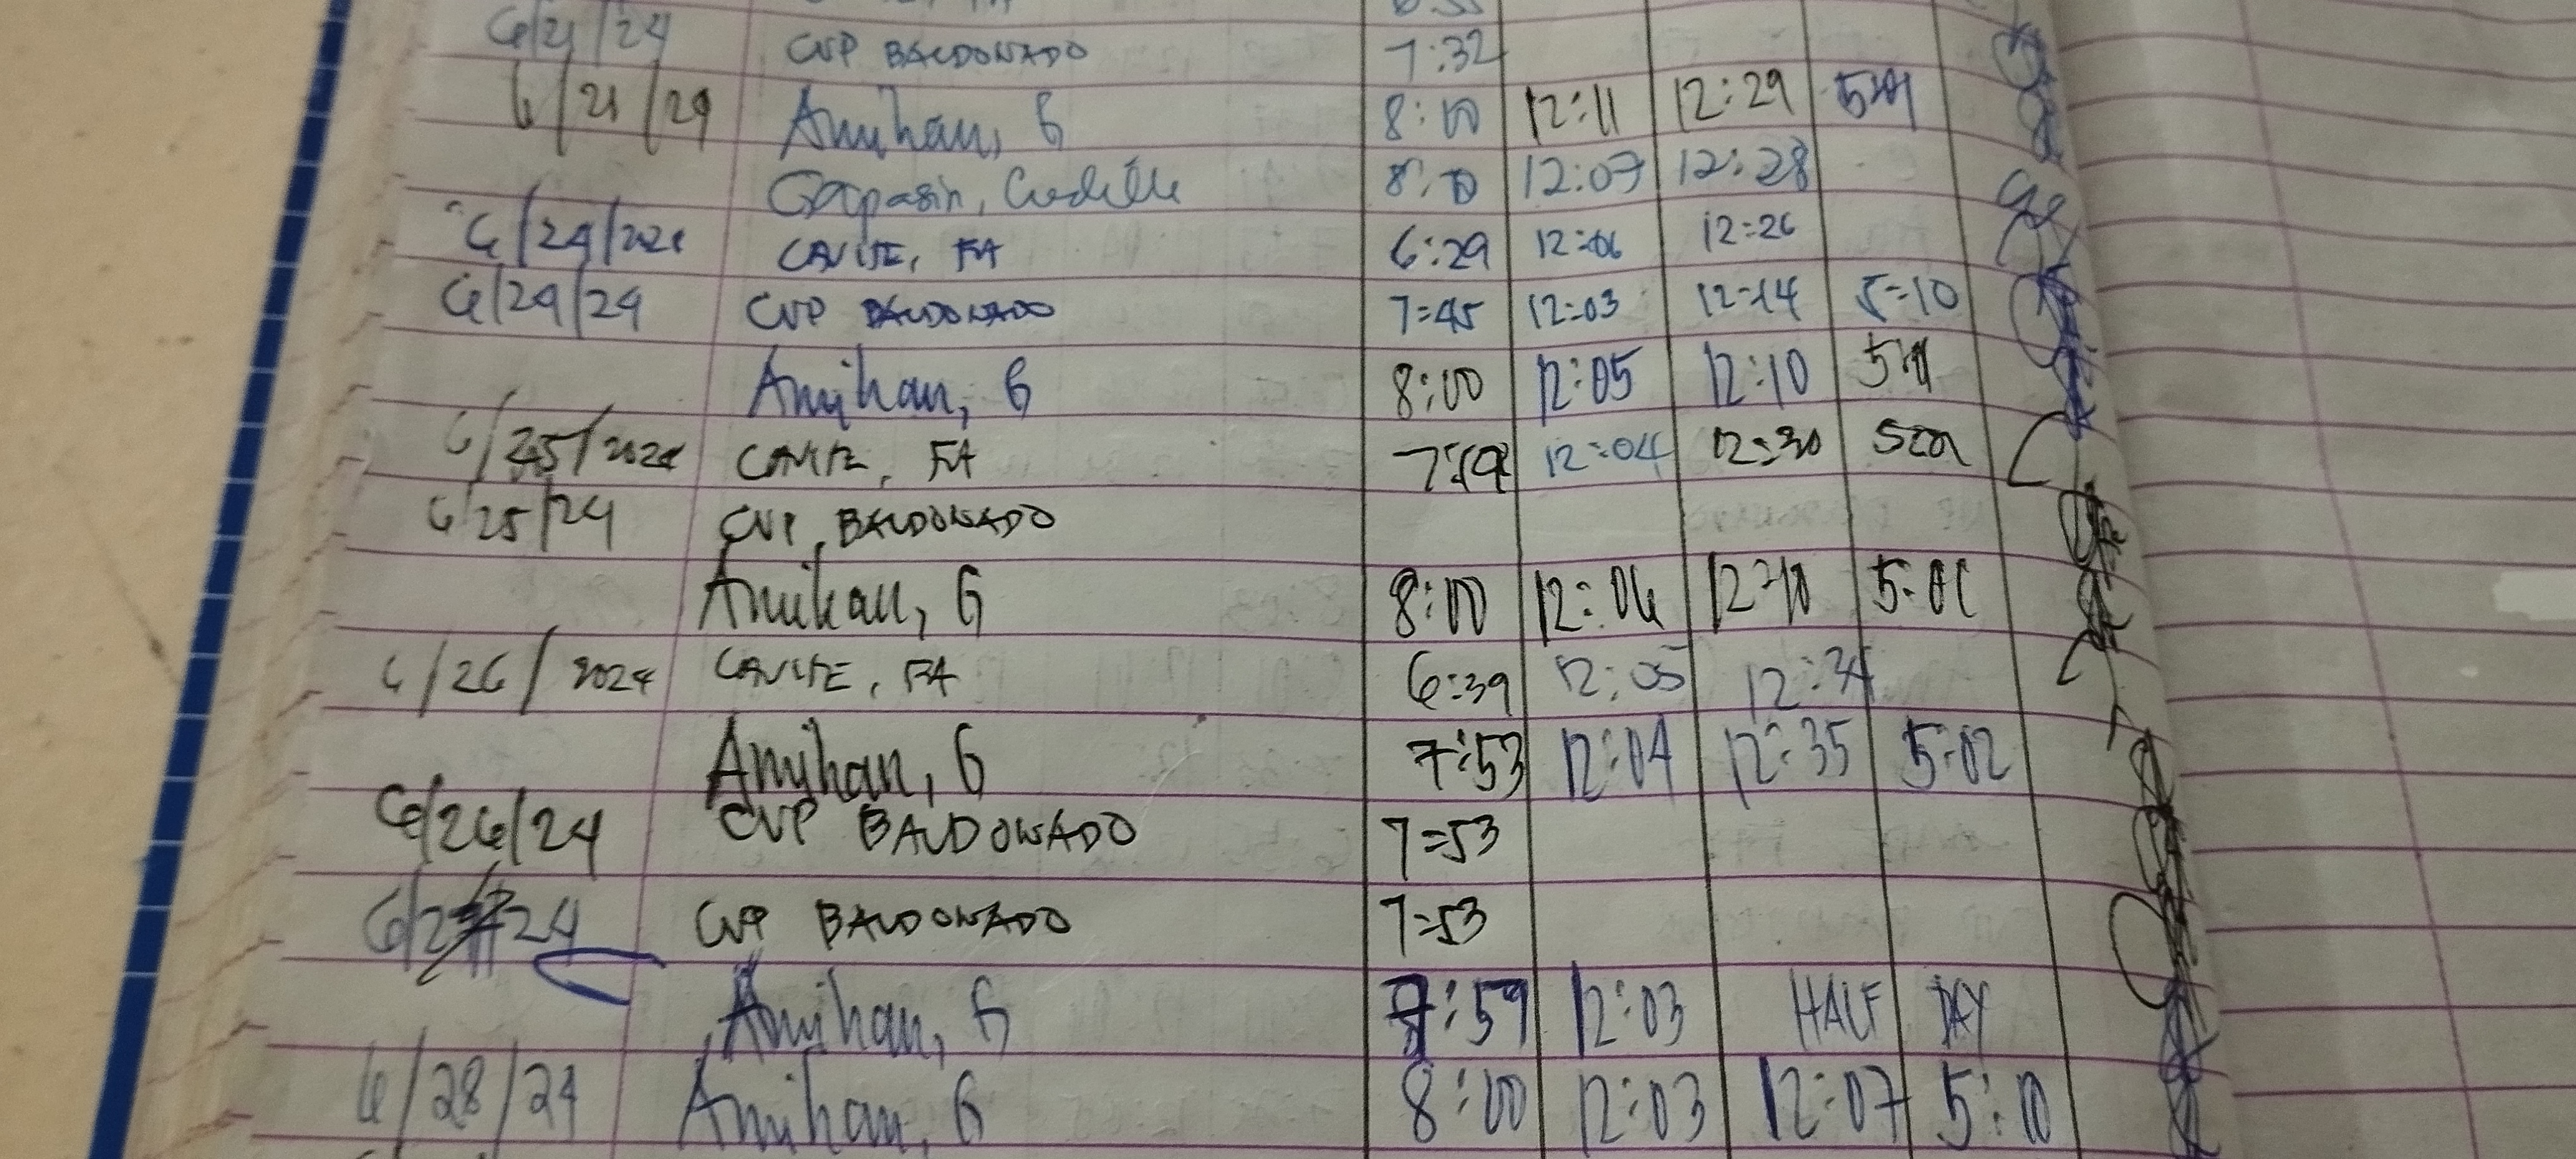 6/21/24 CVP BALDONADO 7:32
6/21/24 Amihan, G 8:00 12:11 12:29
Gaspasin, 12:07 12:28
6/24/2024 CAVITE, FA 6:29 12:06 12:26
6/24/24 CVP BALDONADO 7:45 12:03 12:14 5:10
Amihan, G 8:00 12:05 12:10
6/25/2024 CAVITE, FA 12:04 12:30
6/25/24 CVP BALDONADO
Amihan, G 8:00 12:06 12:10 5:01
6/26/2024 CAVITE, FA 6:39 12:05
Amihan, G 7:53 12:04 12:35 5:02
6/26/24 CVP BALDONADO 7:53
6/27/24 CVP BALDONADO 7:53
Amihan, G 7:59 12:03 HALF DAY
6/28/24 Amihan, G 8:00 12:03 12:07 5:10